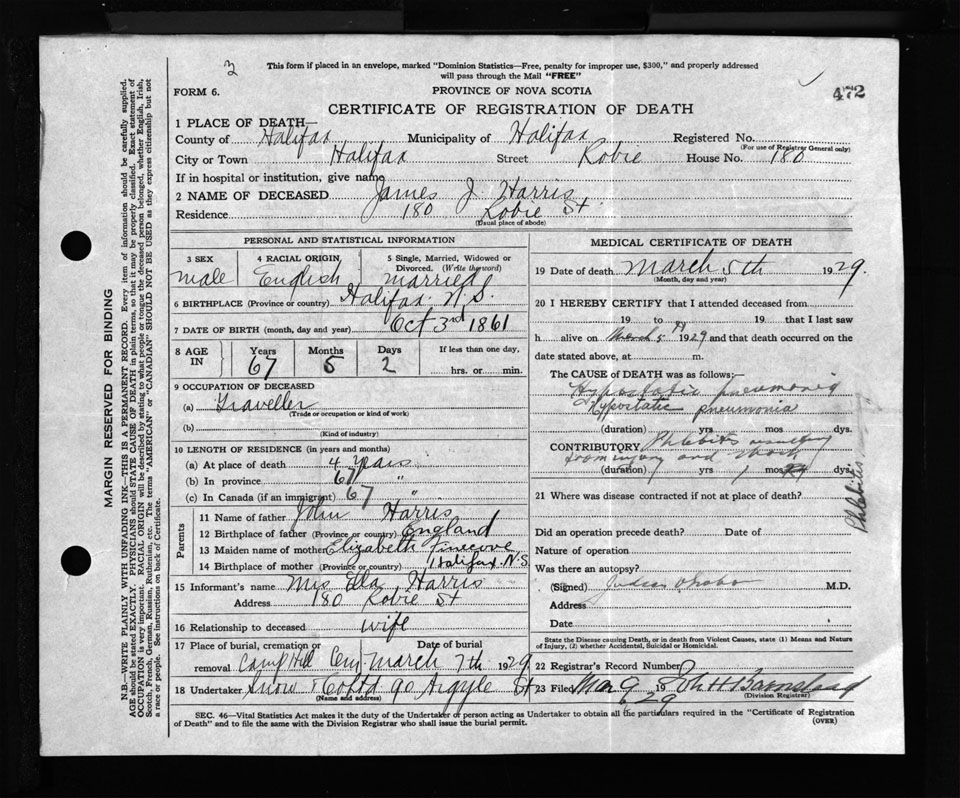 3
This form if placed in an envelope, marked "Dominion Statistics—Free, penalty for improper use, $300," and properly addressed
will pass through the Mail "FREE"
472
FORM 6.
PROVINCE OF NOVA SCOTIA
CERTIFICATE OF REGISTRATION OF DEATH
1 PLACE OF DEATH—
County of Halifax Municipality of Halifax Registered No.
(For use of Registrar General only)
City or Town Halifax Street Robie House No. 180
If in hospital or institution, give name
2 NAME OF DECEASED James J Harris
Residence 180 Robie St.
(Usual place of abode)
PERSONAL AND STATISTICAL INFORMATION
3 SEX
male
4 RACIAL ORIGIN
English
5 Single, Married, Widowed or
Divorced. (Write the word)
married
6 BIRTHPLACE (Province or country) Halifax N.S.
7 DATE OF BIRTH (month, day and year) Oct 3rd 1861
8 AGE
IN
Years
67
Months
5
Days
2
If less than one day.
hrs. or min.
9 OCCUPATION OF DECEASED
(a) Traveller
(Trade or occupation or kind of work)
(b)
(Kind of industry)
10 LENGTH OF RESIDENCE (in years and months)
(a) At place of death 4 years
(b) In province 67 "
(c) In Canada (if an immigrant) 67 "
Parents
11 Name of father John Harris
12 Birthplace of father (Province or country) England
13 Maiden name of mother Elizabeth
14 Birthplace of mother (Province or country) Halifax N.S.
15 Informant's name Mrs Ella Harris
Address 180 Robie St
16 Relationship to deceased wife
17 Place of burial, cremation or
removal Camp Hill Cem.
Date of burial
March 7th 1929
18 Undertaker Snow & Co Ltd 90 Argyle St
(Name and address)
MEDICAL CERTIFICATE OF DEATH
19 Date of death March 5th 1929.
(Month, day and year)
20 I HEREBY CERTIFY that I attended deceased from
19 to 19 that I last saw
h alive on March 5th 1929 and that death occurred on the
date stated above, at m.
The CAUSE of DEATH was as follows:—
Hypostatic pneumonia
Hypostatic pneumonia
(duration) yrs mos dys.
CONTRIBUTORY Phlebitis resulting
from injury and shock
(duration) yrs 1 mos dys.
Phlebitis
21 Where was disease contracted if not at place of death?
Did an operation precede death? Date of
Nature of operation
Was there an autopsy?
(Signed) M.D.
Address
Date
State the Disease causing Death, or in death from Violent Causes, state (1) Means and Nature
of Injury, (2) whether Accidental, Suicidal or Homicidal.
22 Registrar's Record Number
23 Filed Mar 9 1929 John H Barnstead
(Division Registrar)
SEC. 46—Vital Statistics Act makes it the duty of the Undertaker or person acting as Undertaker to obtain all the particulars required in the "Certificate of Registration
of Death" and to file the same with the Division Registrar who shall issue the burial permit.
(OVER)
MARGIN RESERVED FOR BINDING
N.B.—WRITE PLAINLY WITH UNFADING INK—THIS IS A PERMANENT RECORD. Every item of information should be carefully supplied.
AGE should be stated EXACTLY. PHYSICIANS should STATE CAUSE OF DEATH in plain terms, so that it may be properly classified. Exact statement of
OCCUPATION is very important. RACIAL ORIGIN will be described by stating to what people or tongue the deceased person belonged, whether English, Irish,
Scotch, French, German, Russian, Ruthenian, etc. The terms "AMERICAN" or "CANADIAN" SHOULD NOT BE USED as they express citizenship but not
a race or people. See instructions on back of Certificate.